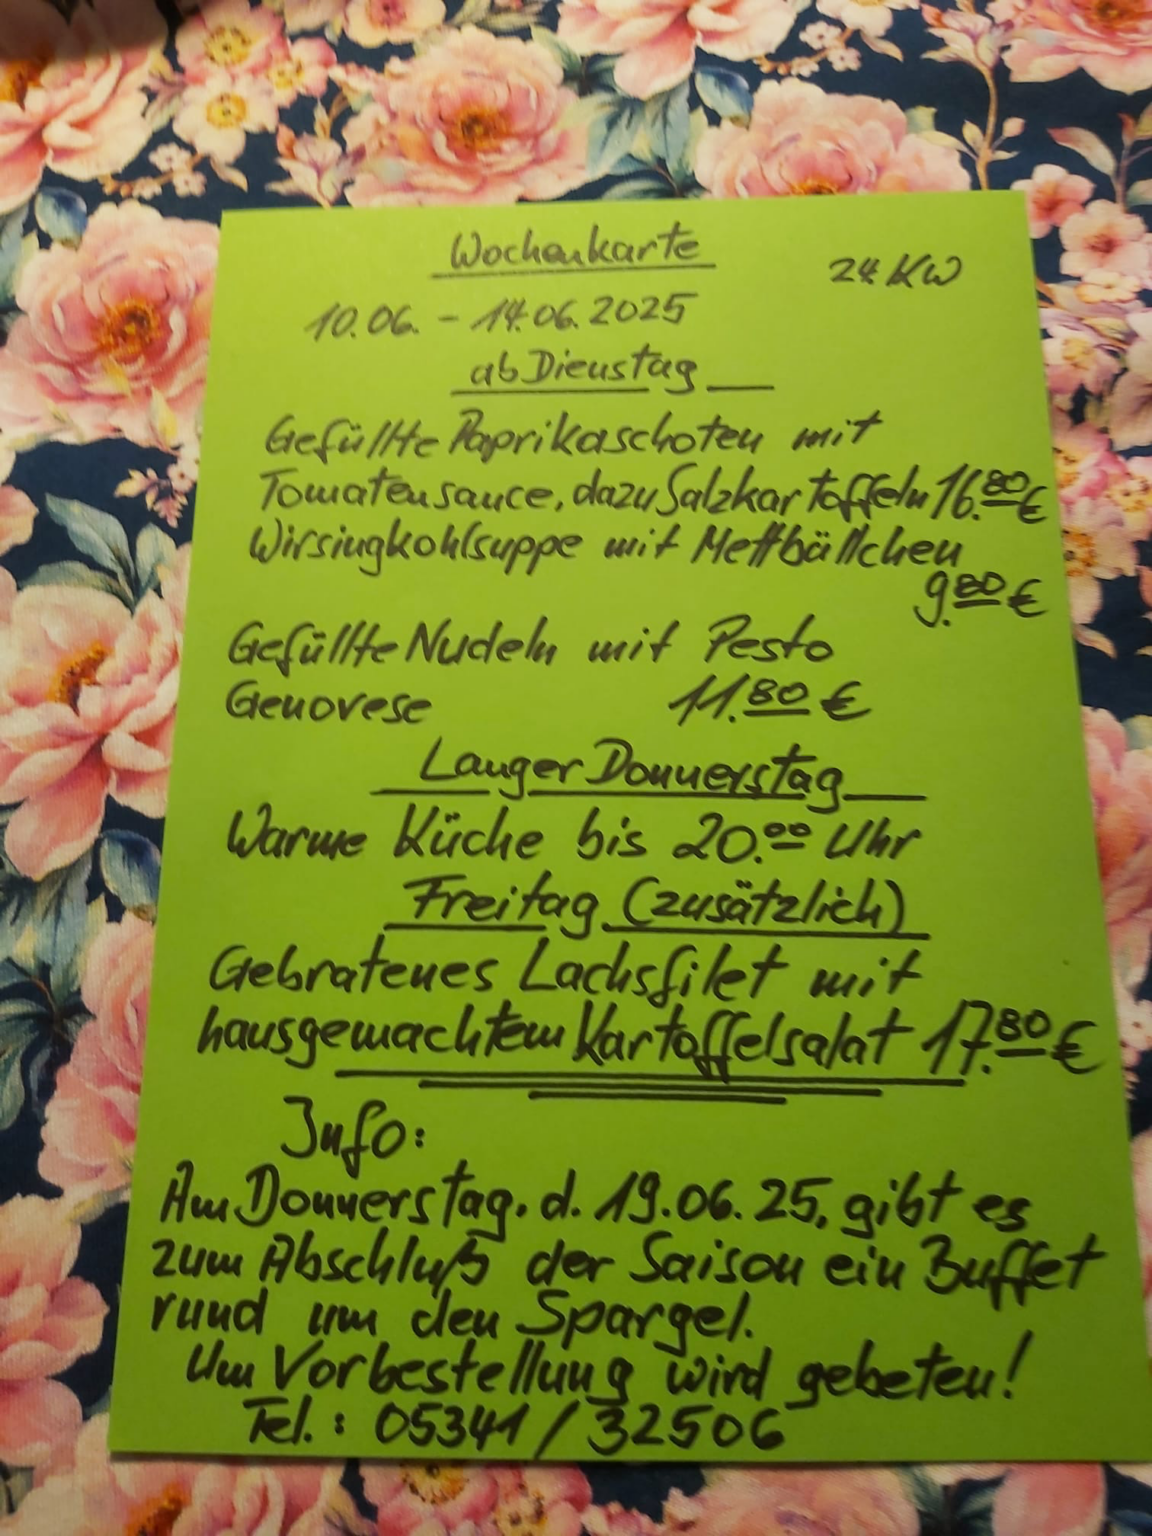 Wochenkarte
24. KW
10.06. - 14.06.2025
ab Dienstag
Gefüllte Paprikaschoten mit
Tomatensauce, dazu Salzkartoffeln 16.80 €
Wirsingkohlsuppe mit Mettbällchen
9.80 €
Gefüllte Nudeln mit Pesto
Genovese 11.80 €
Langer Donnerstag
Warme Küche bis 20.00 Uhr
Freitag (zusätzlich)
Gebratenes Lachsfilet mit
hausgemachtem Kartoffelsalat 17.80 €
Info:
Am Donnerstag, d. 19.06.25, gibt es
zum Abschluß der Saison ein Buffet
rund um den Spargel.
Um Vorbestellung wird gebeten!
Tel.: 05341 / 32506